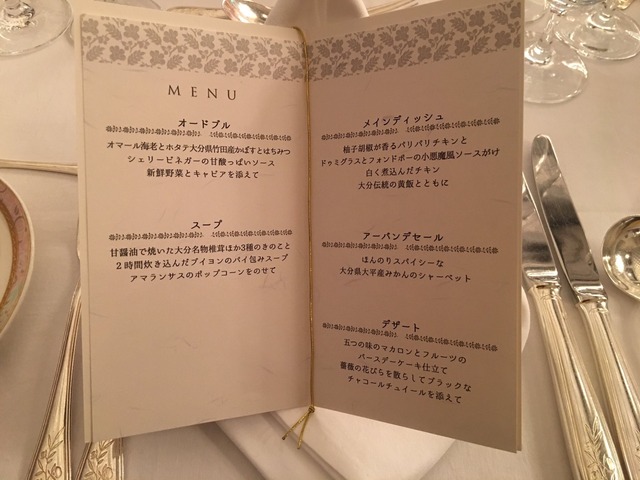 MENU
オードブル
オマール海老とホタテ大分県竹田産かぼすとはちみつ
シェリービネガーの甘酸っぱいソース
新鮮野菜とキャビアを添えて
スープ
甘醤油で焼いた大分名物椎茸ほか3種のきのこと
2時間炊き込んだブイヨンのパイ包みスープ
アマランサスのポップコーンをのせて
メインディッシュ
柚子胡椒が香るパリパリチキンと
ドゥミグラスとフォンドボーの小悪魔風ソースがけ
白く煮込んだチキン
大分伝統の黄飯とともに
アーバンデセール
ほんのりスパイシーな
大分県大平産みかんのシャーベット
デザート
五つの味のマカロンとフルーツの
バースデーケーキ仕立て
薔薇の花びらを散らしてブラックな
チャコールチュイールを添えて